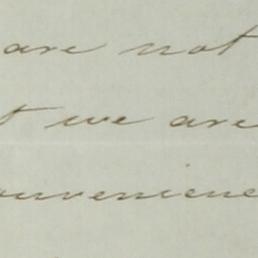 are not
t we are
onvenienc